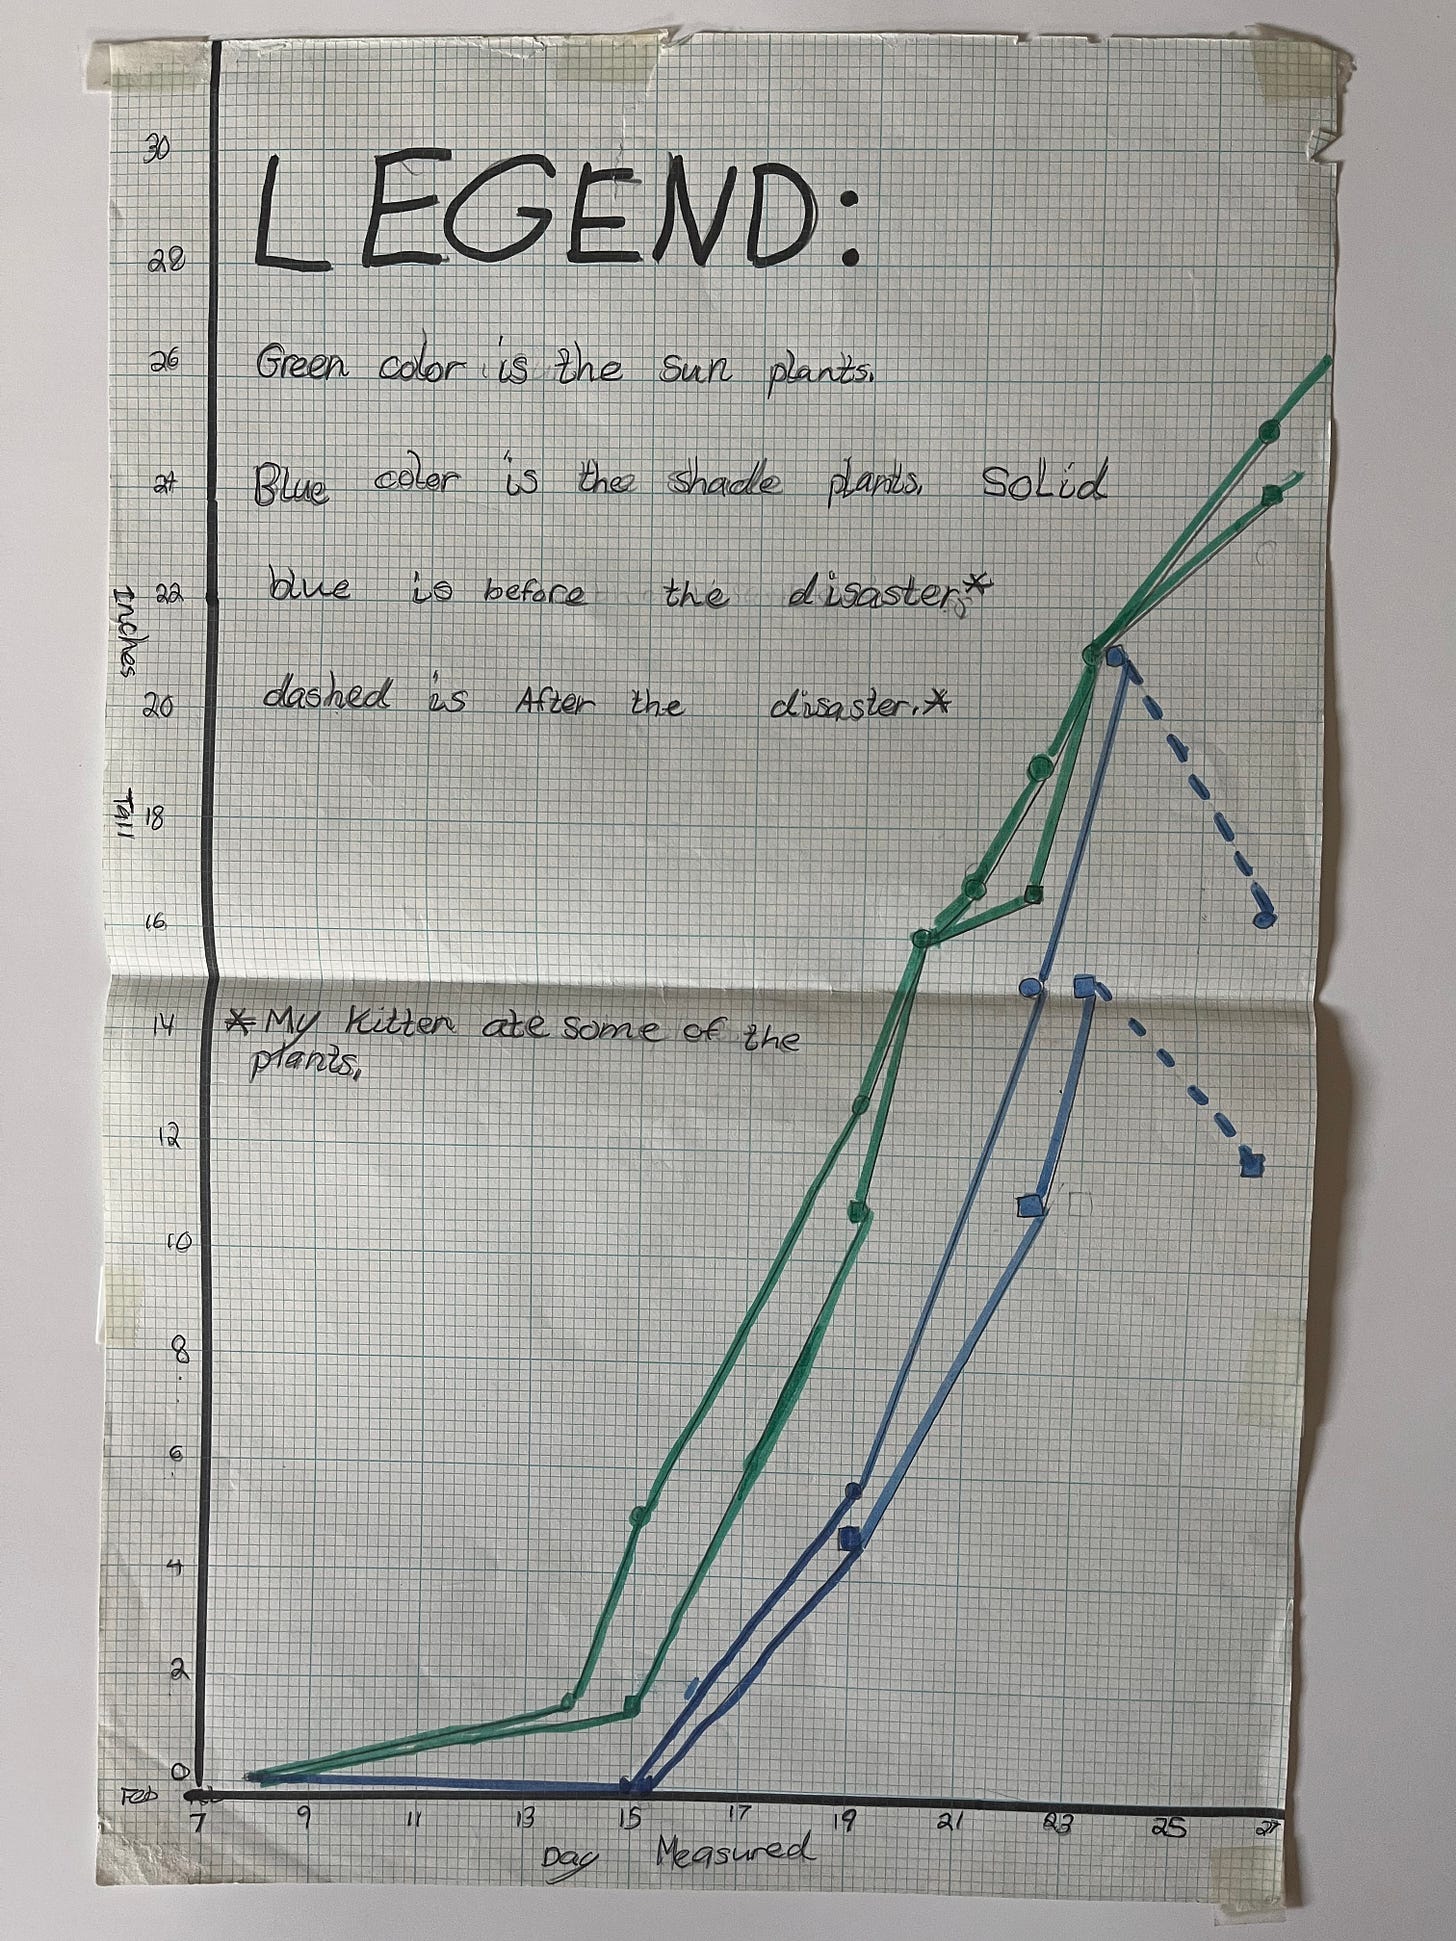 30
LEGEND:
28
26
Green color is the sun plants.
24
Blue color is the shade plants. Solid
22
blue is before the disaster.*
Inches
20
dashed is After the disaster.*
Tall
18
16
14
*My Kitten ate some of the
plants.
12
10
8
6
4
2
0
Feb
7 9 11 13 15 17 19 21 23 25 27
Day Measured